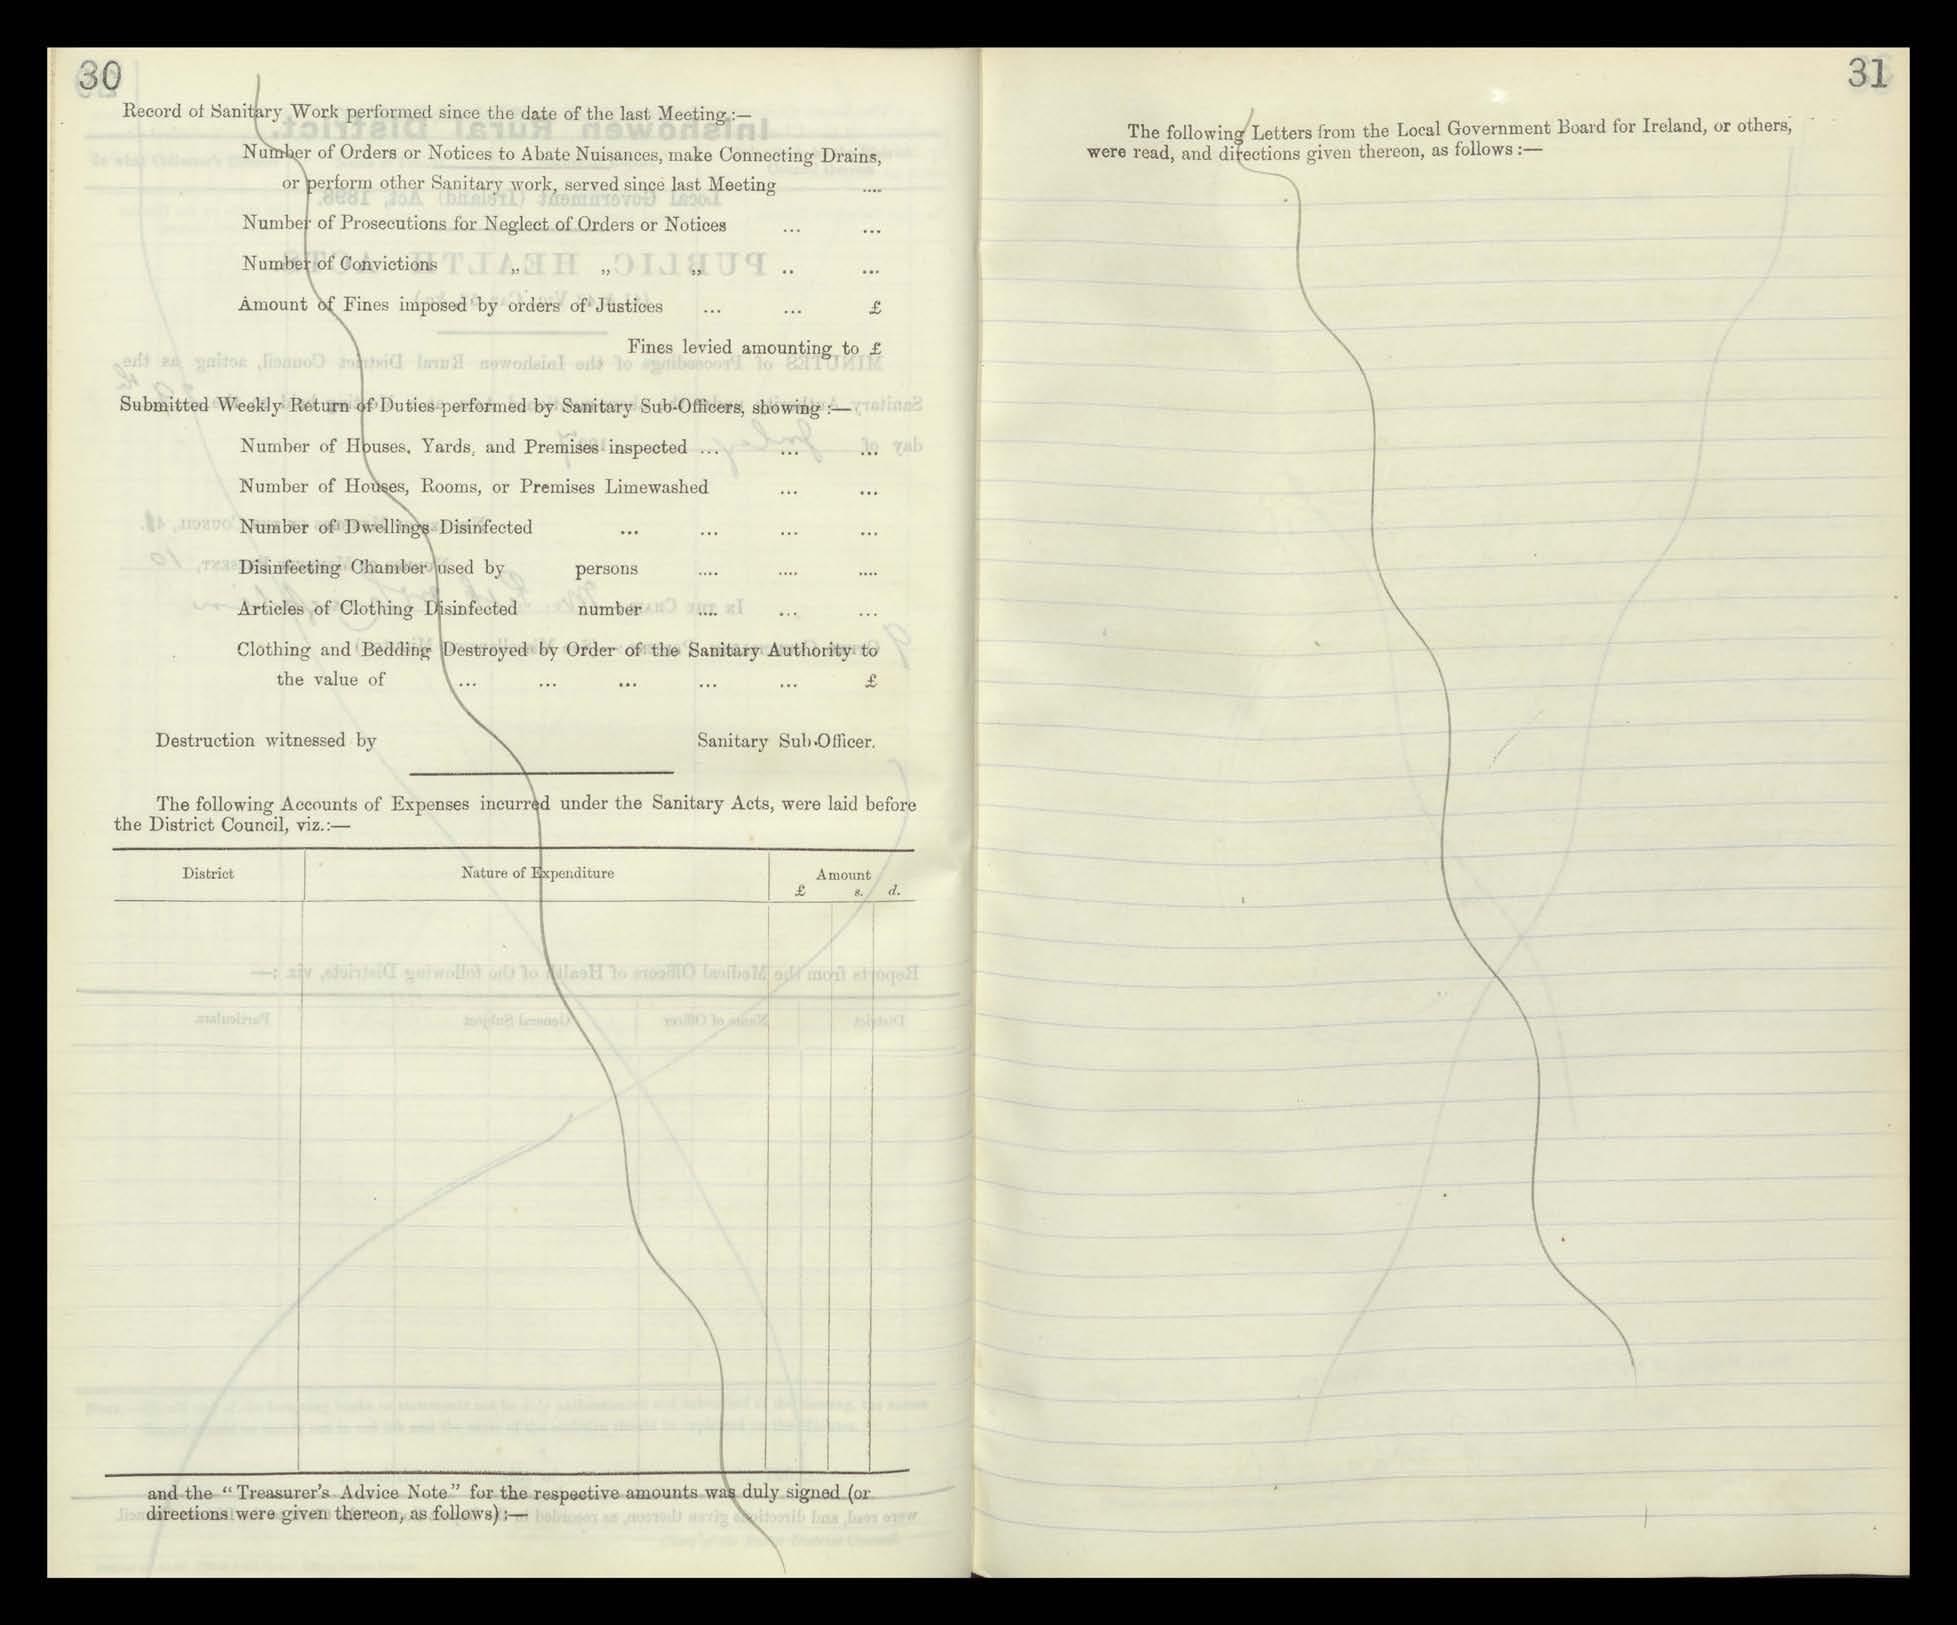 30
Record of Sanitary Work performed since the date of the last Meeting:—
Number of Orders or Notices to Abate Nuisances, make Connecting Drains,
or perform other Sanitary work, served since last Meeting ....
Number of Prosecutions for Neglect of Orders or Notices ... ...
Number of Convictions „ „ „ .. ...
Amount of Fines imposed by orders of Justices ... ... £
Fines levied amounting to £
Submitted Weekly Return of Duties performed by Sanitary Sub-Officers, showing :—
Number of Houses, Yards, and Premises inspected ... ... ...
Number of Houses, Rooms, or Premises Limewashed ... ...
Number of Dwellings Disinfected ... ... ... ...
Disinfecting Chamber used by persons .... .... ....
Articles of Clothing Disinfected number .... ... ...
Clothing and Bedding Destroyed by Order of the Sanitary Authority to
the value of ... ... ... ... ... £
Destruction witnessed by Sanitary Sub-Officer.
The following Accounts of Expenses incurred under the Sanitary Acts, were laid before
the District Council, viz.:—
District Nature of Expenditure Amount
£ s. d.
and the “Treasurer's Advice Note” for the respective amounts was duly signed (or
directions were given thereon, as follows) :—
31
The following Letters from the Local Government Board for Ireland, or others,
were read, and directions given thereon, as follows :—